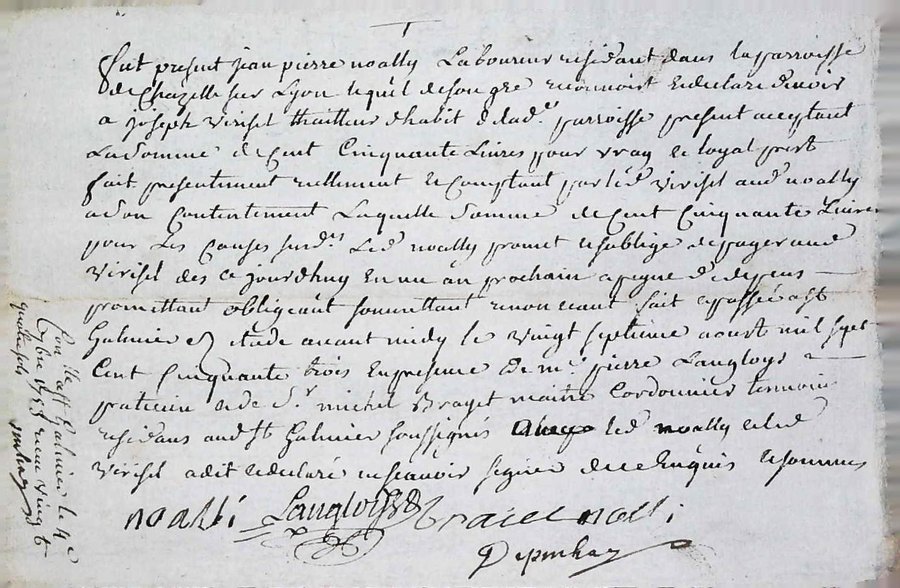 fut present jean pierre noally Laboureur residant dans la parroisse
de Chazelle sur Lyon lequel de son gre reconnoist et declare devoir
a joseph virisel thailleur d'habit de lad.e parroisse present acceptant
La somme de Cent Cinquante Livres pour vray et loyal prest
fait presentement reellement et comptant par led virisel aud noally
a son Contentement Laquelle somme de Cent Cinquante Livres
pour Les Causes surd.es Led noally promet et soblige de payer aud
virisel des ce jourdhuy en un an prochain a peyne de depens
promettant obligeant soumettant renonceant fait et passé a st
Galmier etude avant midy le vingt septieme aoust mil sept
Cent Cinquante trois En presence de m.e pierre Langloys
praticien et de S.r michel Brayet maitre Cordonnier temoins
residans aud st Galmier soussignés led noally et led
virisel a dit et declaré ne scavoir signer de ce Enquis et sommes
noalli Langlois Braiet noalli
Depinhac
Con.lle a st Galmier le
1753 receu vingt
quatre sols